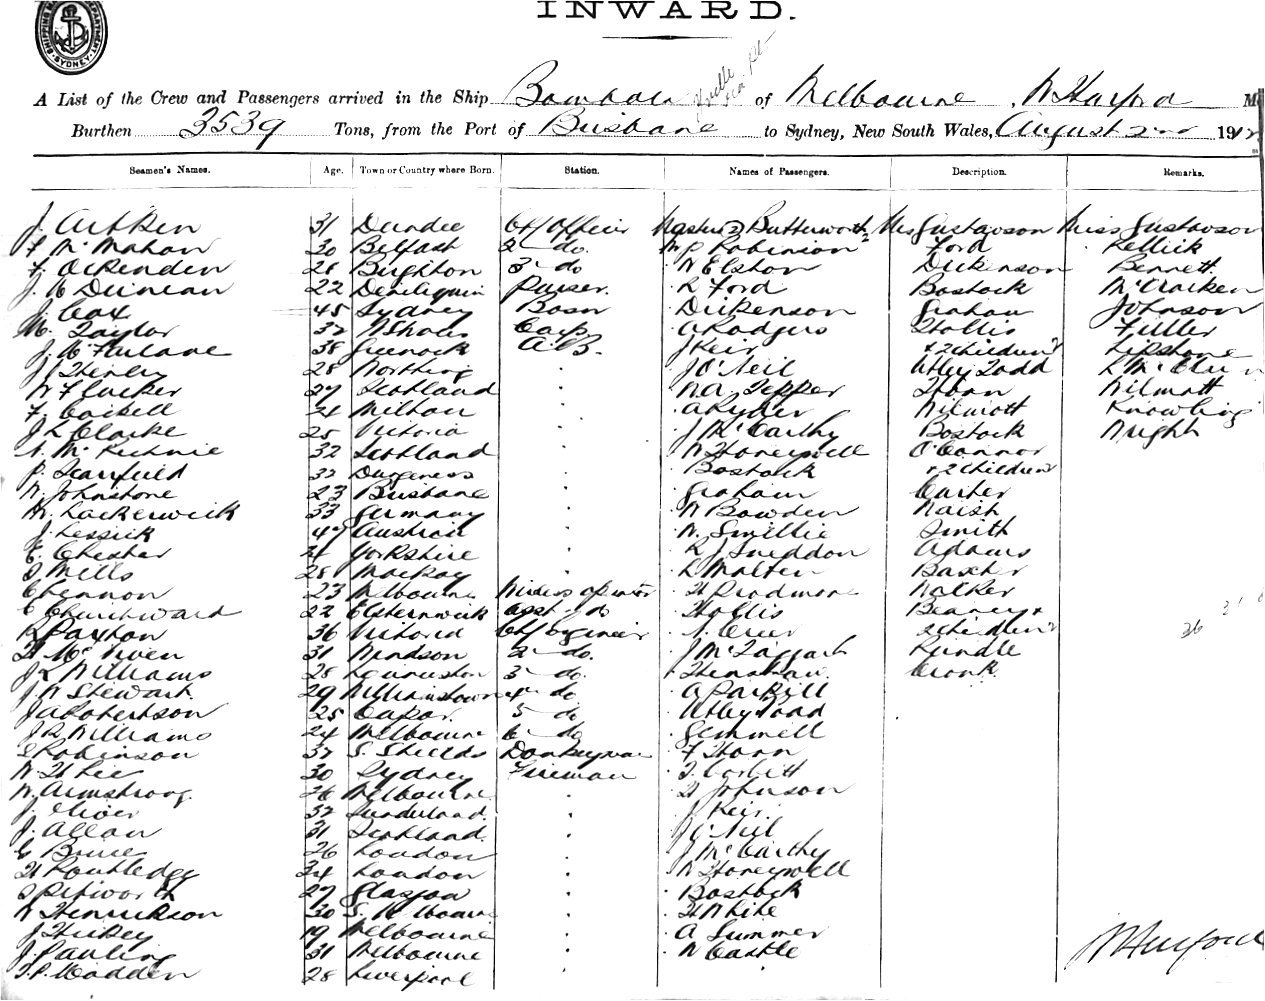 INWARD.
SHIPPING MASTER'S DEPARTMENT. SYDNEY
A List of the Crew and Passengers arrived in the Ship Bombala of Melbourne, W Harford M
Burthen 3539 Tons, from the Port of Brisbane to Sydney, New South Wales, August 2nd 1912
Seamen's Names. Age. Town or Country where Born. Station. Names of Passengers. Description. Remarks.
J. Aitken 31 Dundee Ch Officer Masters 2 Butterworth Mrs Gustavson Miss Gustavson
F McMahon 30 Belfast 2 do. Robinson Ford Kellick
F. Ockenden 26 Brighton 3 do W Elston Dickenson Bennett
J. W Duncan 22 Deniliquin Purser. R Ford Bostock McCracken
J. Cox 45 Sydney Bosn Dickenson Graham Johnson
Taylor 32 Carp A Rodgers Hollis Fuller
J. McFarlane 38 Greenock A.B. J Keir & 2 children Lipstone
J Henley 28 J O'Neil Utley Todd
W F Tucker 27 Scotland W.A. Tepper Horn Wilmott
F. Cockell Milton A Ryder Wilmott Knowling
J L Clarke 25 Victoria J McCarthy Bostock Wright
McRitchie 32 Scotland W Honeywell O'Connor
P. Scarfield 33 Dungeness Bostock & 2 children
W. Johnstone 23 Brisbane Graham Carter
M. Lackerwick 33 Germany W Bowden Naish
J. Lessick Austria W. Smillie Smith
C. Chester Yorkshire R J Sneddon Adams
D Mills 28 Mackay R Malten Baxter
C Lennon 23 Melbourne Wireless operator H Prodmore Walker
C Churchward 22 Elsternwick asst do Hollis Beaney &
R Paxton 36 Victoria Ch Engineer Greer 2 children 36
H McNiven 31 Windsor 2 do. J McTaggart Rundle
J R Williams 28 Launceston 3 do. Henshaw Cronk
J. W Stewart 29 Williamstown 4 do A Parkill
J A Robertson 25 5 do Utley Todd
J R Williams 24 Melbourne 6 do Gemmell
Robinson 37 S. Shields Donkeyman F Horn
W H Lee 30 Sydney Fireman T. Corbitt
W. Armstrong 26 Melbourne H Johnson
J. Oliver 32 Sunderland J Keir
J. Allan 31 Scotland J O'Neil
G Bruce 26 London J McCarthy
H Routledge 34 London W Honeywell
Petworth 27 Glasgow Bostock
W Henrickson 30 S. Melbourne H White
J Hickey 19 Melbourne A Summer
J. Pauling 31 Melbourne W Castle W Harford
J. P. Madden 28 Liverpool